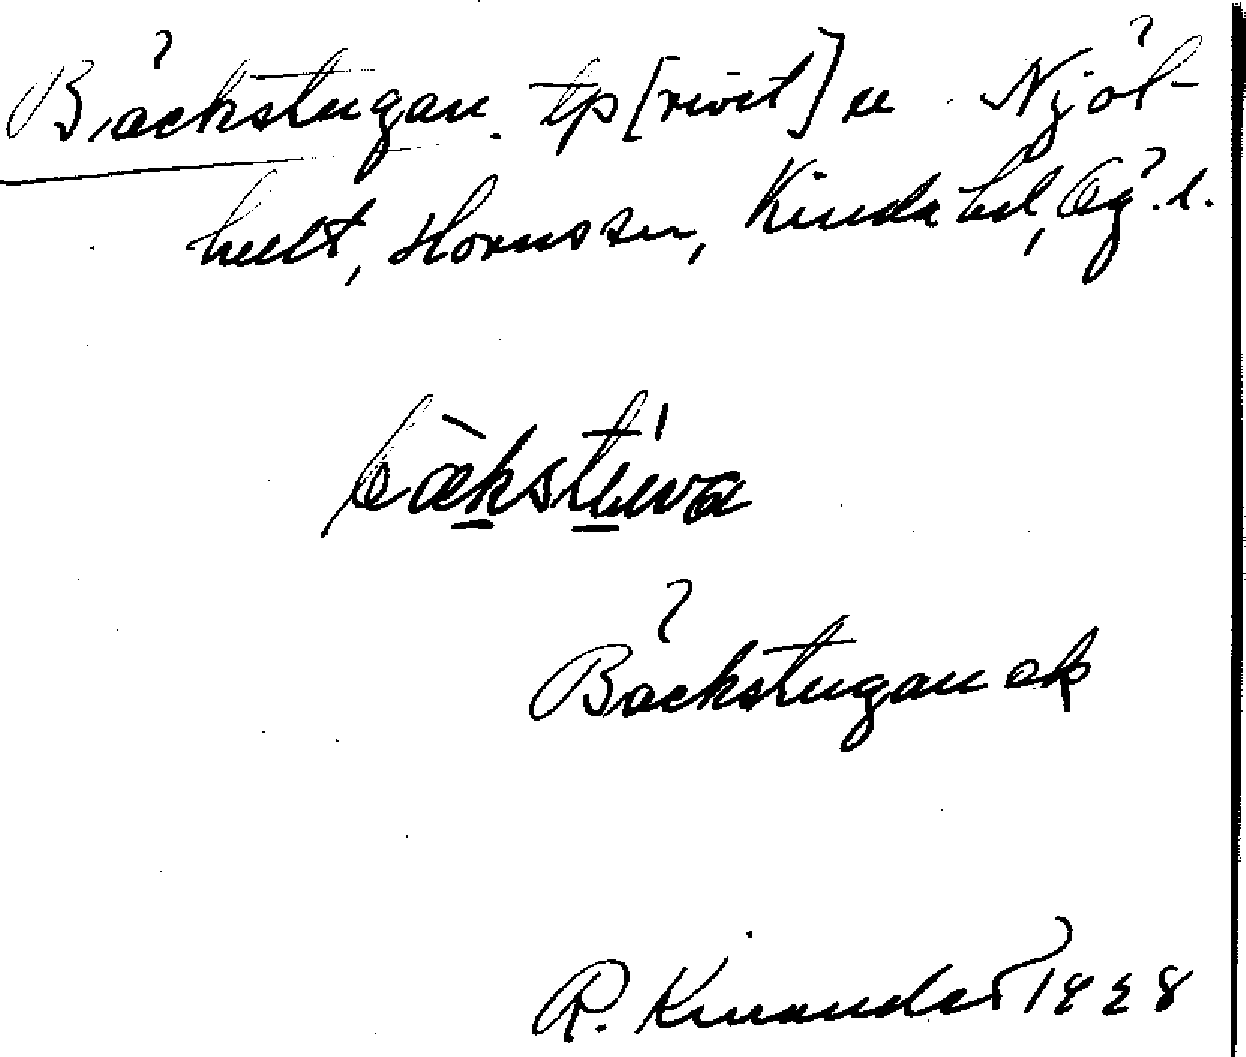 Bäckstugan. tp [rivet] u Njöl-
hult, Horns sn, Kinda hd, Ög. l.
bækstuwa
Bäckstugan ek
R. Kinander 1828